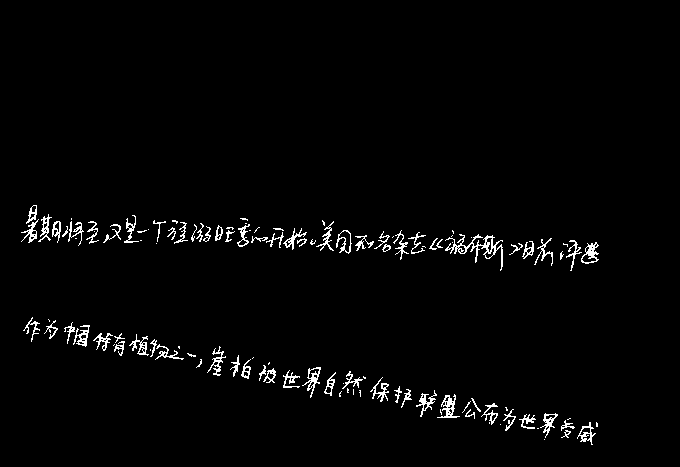 暑期将至,又是一个旅游旺季的开始。美国知名杂志《福布斯》日前评选
作为中国特有植物之一,崖柏被世界自然保护联盟公布为世界受威